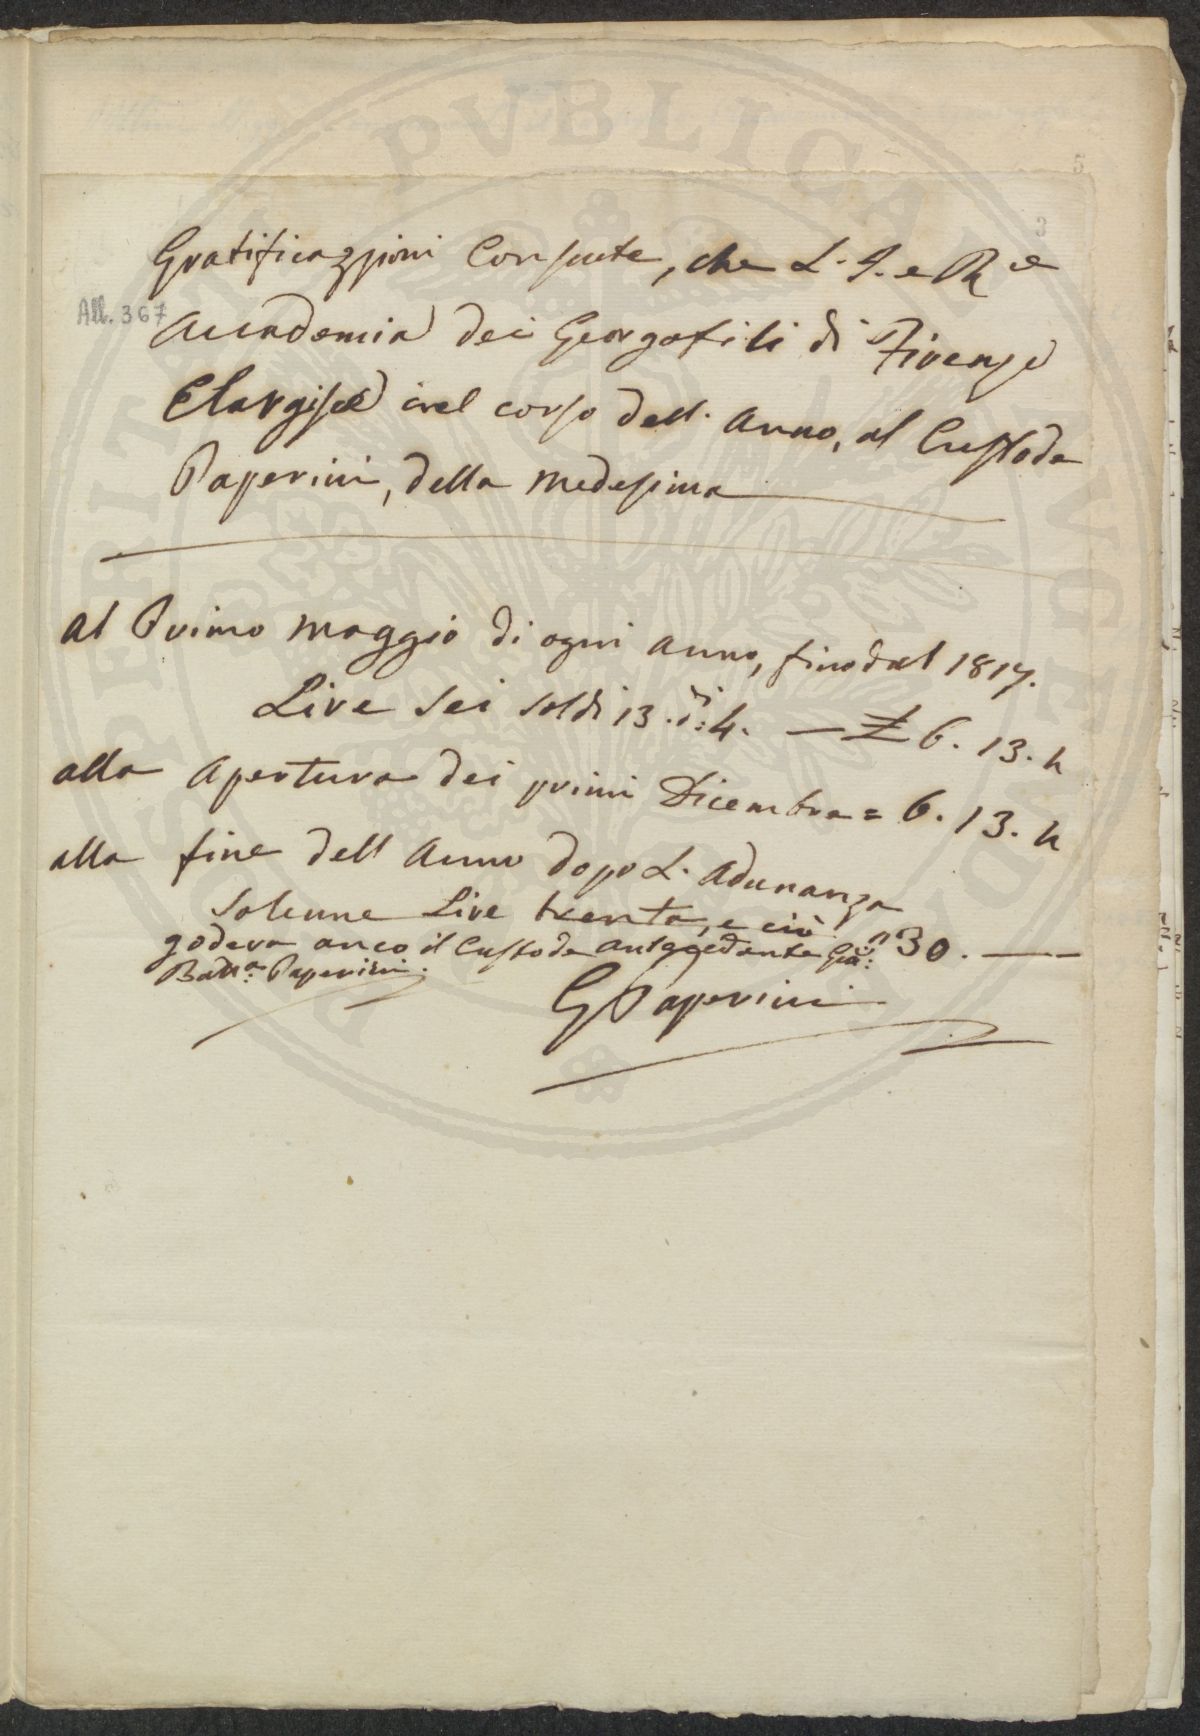 5
3
Gratificazzioni Consuete, che L. I. e R.e
All. 367
Accademia dei Georgofili di Firenze
Elargisce nel corso dell. Anno, al Custode
Paperini, della medesima
Al Primo Maggio di ogni Anno, fino dal 1817.
Lire Sei Soldi 13. di: 4. — £ 6. 13. 4
alla Apertura dei primi Dicembre = 6. 13. 4
alla fine dell Anno dopo L. Adunanza
Solenne Lire trenta, e ciò " 30. —
godeva anco il Custode antecedente Gio:
Batta: Paperini.
G Paperini